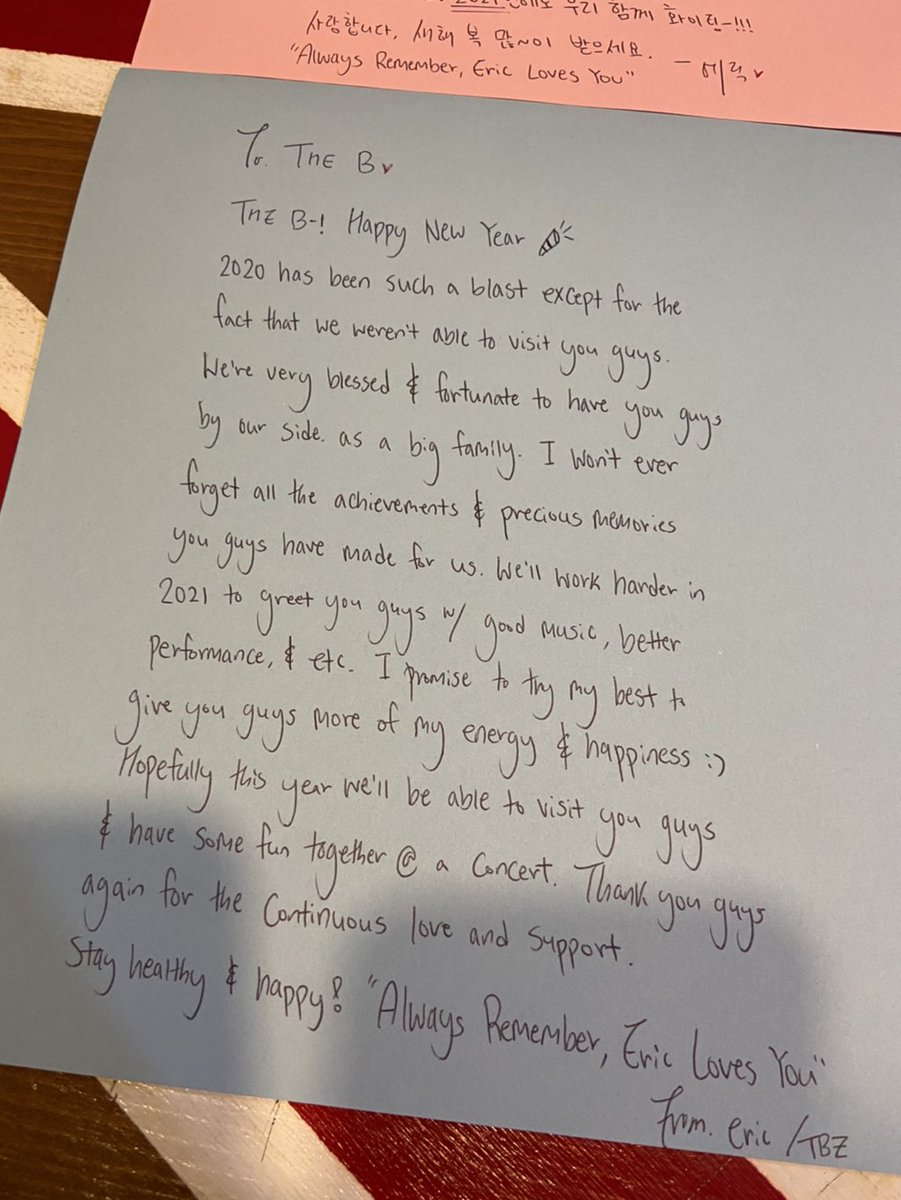 2021년에도 우리 함께 화이팅~!!!
사랑합니다, 새해 복 많~이 받으세요. - 에릭♥
"Always Remember, Eric Loves You"
To. THE B♥
THE B-! Happy New Year
2020 has been such a blast except for the
fact that we weren't able to visit you guys.
We're very blessed & fortunate to have you guys
by our side. as a big family. I won't ever
forget all the achievements & precious memories
you guys have made for us. We'll work harder in
2021 to greet you guys w/ good music, better
performance, & etc. I promise to try my best to
give you guys more of my energy & happiness :)
Hopefully this year we'll be able to visit you guys
& have some fun together @ a concert. Thank you guys
again for the continuous love and support.
Stay healthy & happy! "Always Remember, Eric Loves You"
From. eric /TBZ